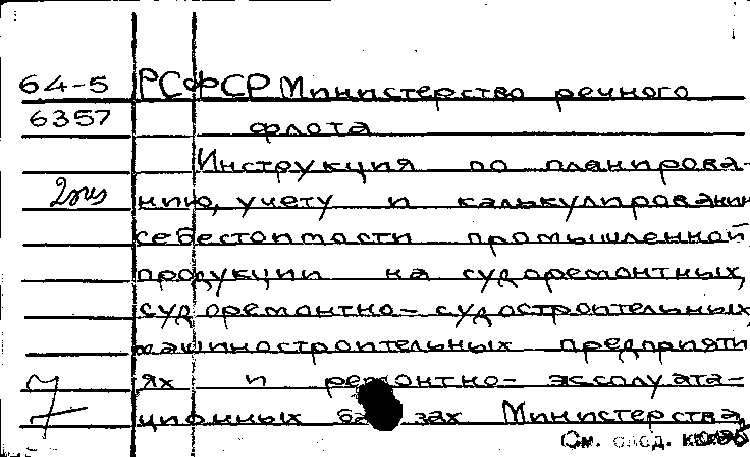 64-5 РСФСР Министерство речного
6357 флота
Инструкция по планирова-
2 экз нию, учету и калькулировании
себестоимости промышленной
продукции на судоремонтных,
судоремонтно-судостроительных,
машиностроительных предприяти
ях и ремонтно-эссплуата-
ционных базах Министерства
См. след.